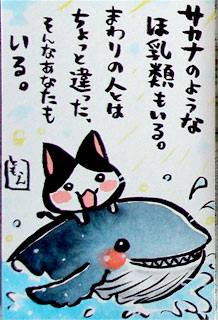 サカナのような
ほ乳類もいる。
まわりの人とは
ちょっと違った、
そんなあなたも
いる。